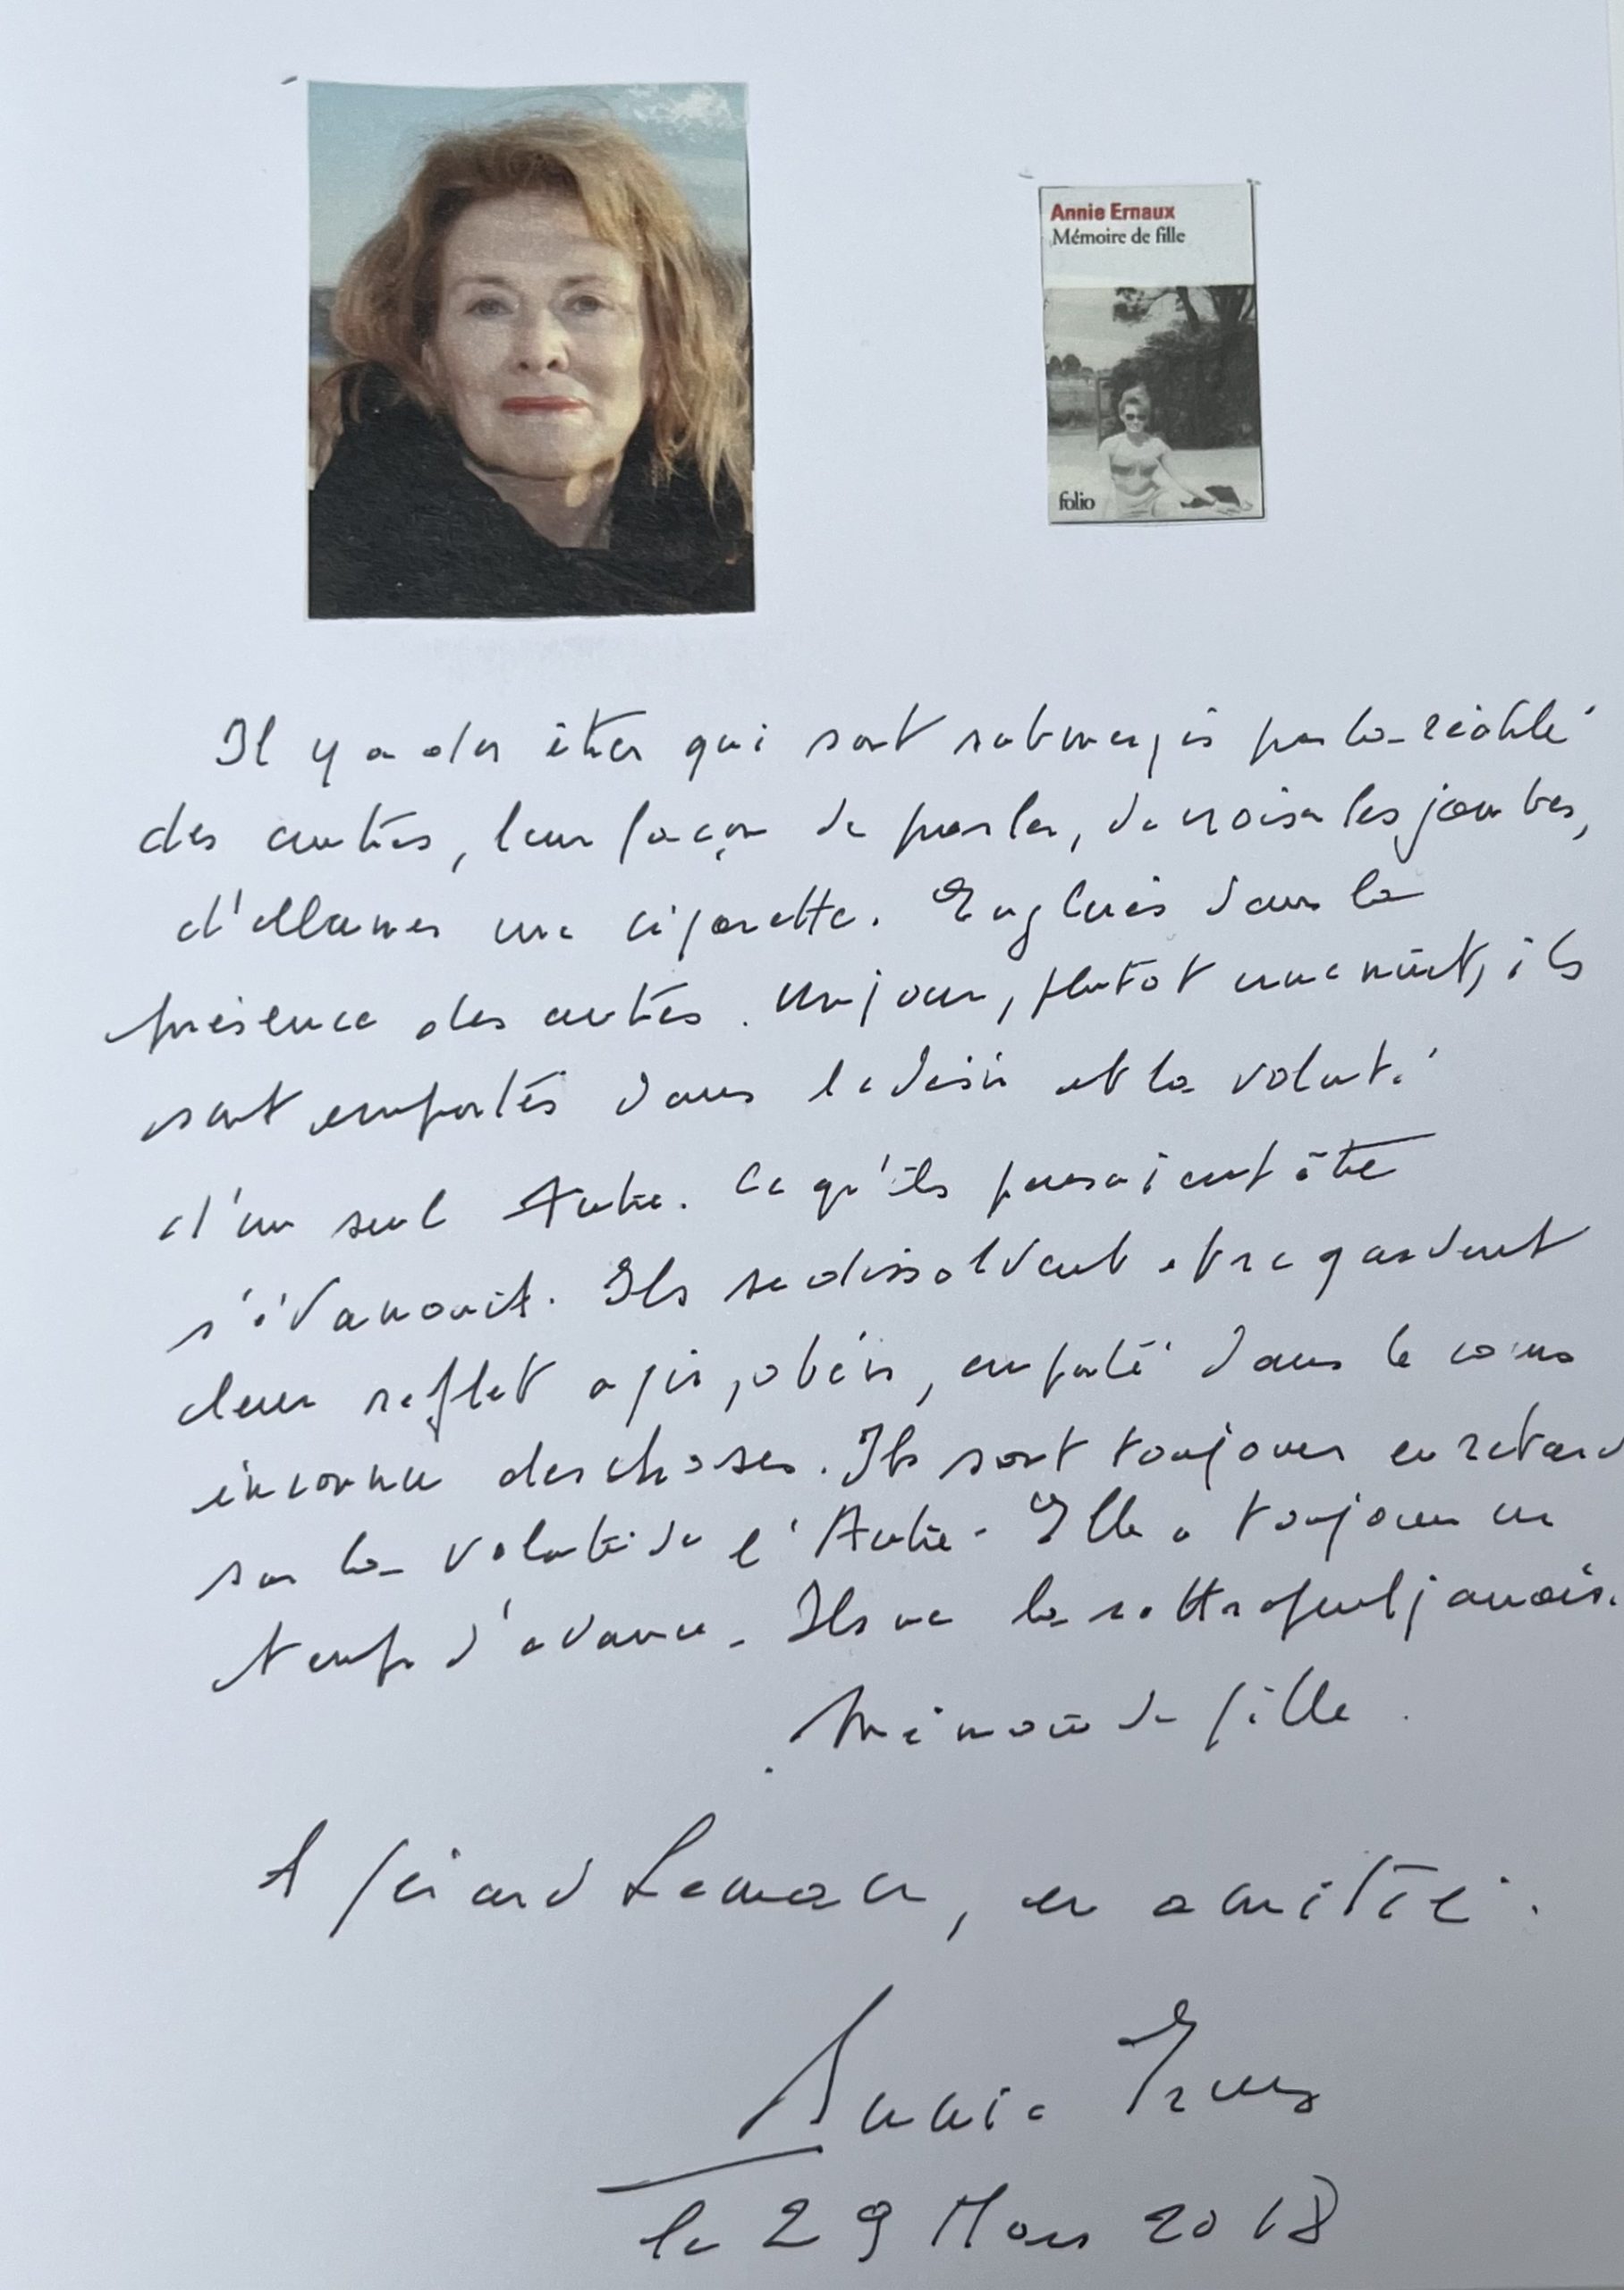 Annie Ernaux
Mémoire de fille
folio
Il y a des êtres qui sont submergés par la réalité
des autres, leur façon de parler, de croiser les jambes,
d'allumer une cigarette. Englués dans la
présence des autres. Un jour, plutôt une nuit, ils
sont emportés dans le désir et la volonté
d'un seul Autre. Ce qu'ils pensaient être
s'évanouit. Ils se dissolvent et regardent
leur reflet agir, obéir, emporté dans le cours
inconnu des choses. Ils sont toujours en retard
sur la volonté de l'Autre. Elle a toujours un
temps d'avance. Ils ne la rattrapent jamais.
Mémoire de fille.
A Gérard, en amitié.
Annie Ernaux
le 29 Mars 2018